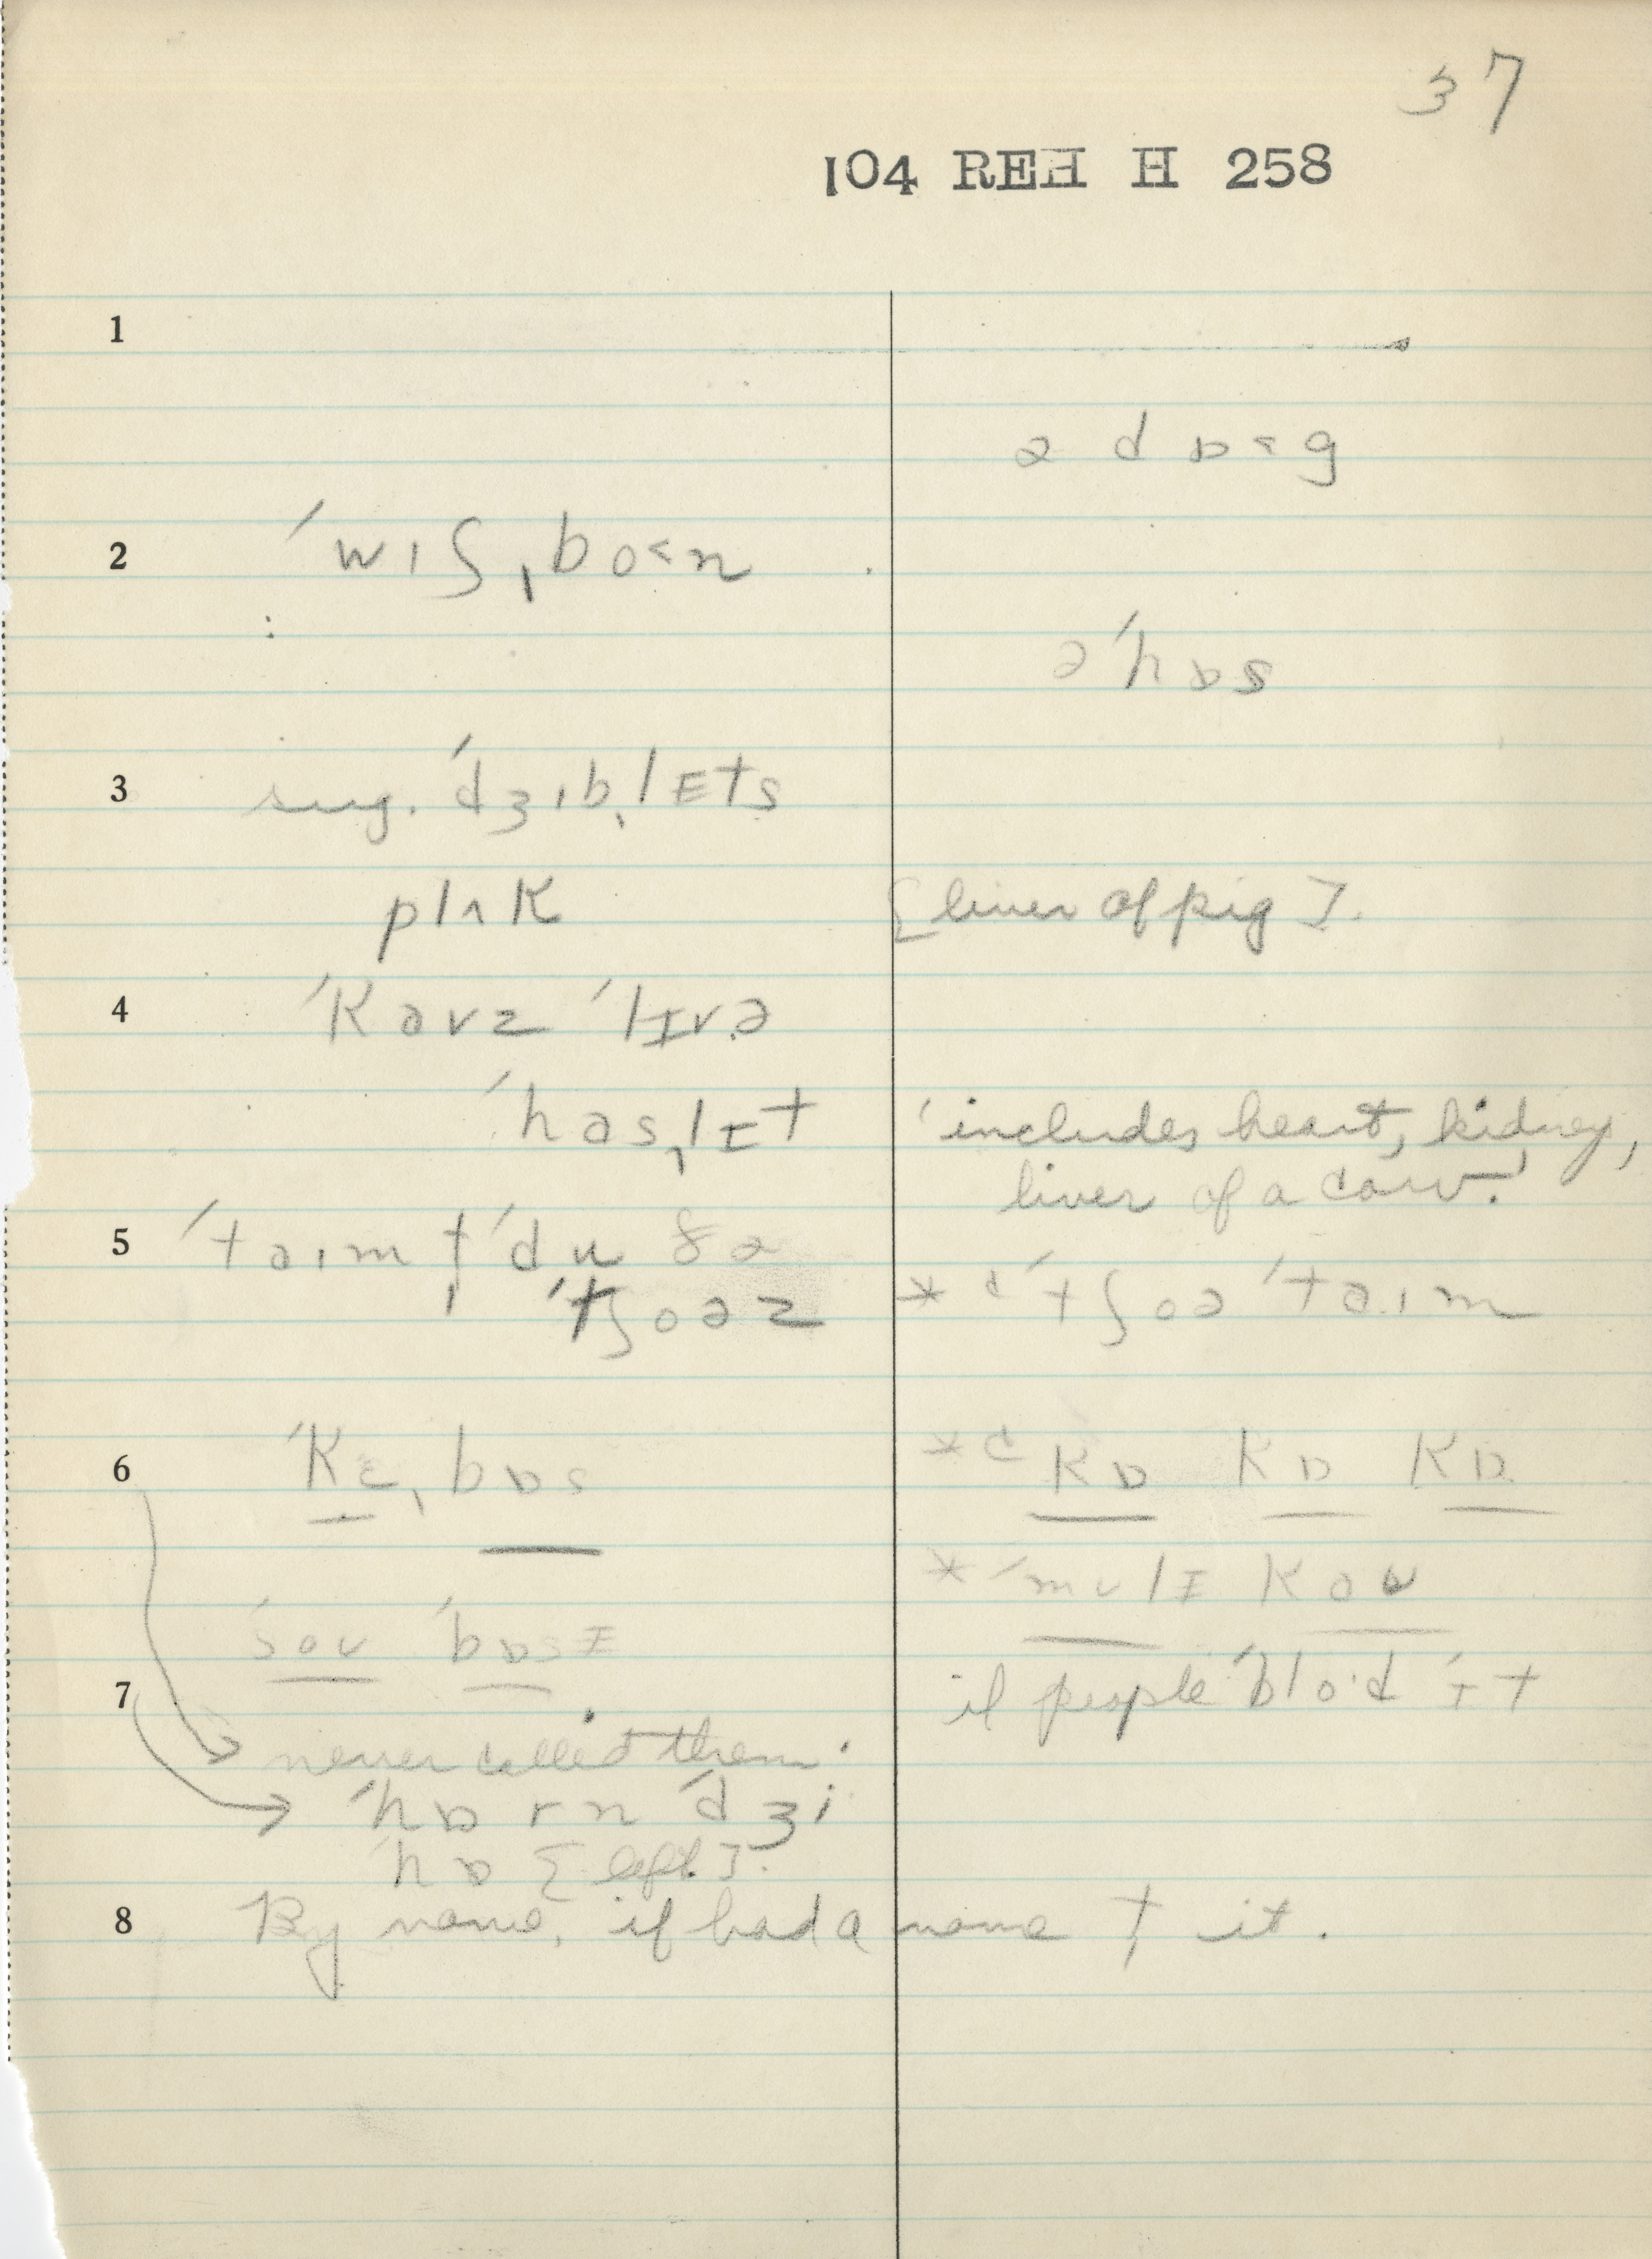 37
104 REH H 258
1
ə d ɒ < g
2 ˈwɪʃˌbo<n
əˈhɒs
3 sug. ˈdʒɪbˌlEts
plʌk [liver of pig].
4 ˈkavz ˈlɪvə
ˈhasˌlɪt ˈincludes heart, kidney,
liver of a cow.ˈ
5 ˈtaɪm t ˈdu ðə
ˈtʃoəz * c ˈtʃoə ˈtaɪm
6 ˈkɛˌbɒs * c kɒ kɒ kɒ
* ˈmʊlɪ kaʊ
ˈsoʊ ˈbɒsɪ
7 if people ˈbloˑd ˈɪt
never called them.
ˈhɒ r n ˈdʒi
ˈhɒ [left].
8 By name, if had a name t it.